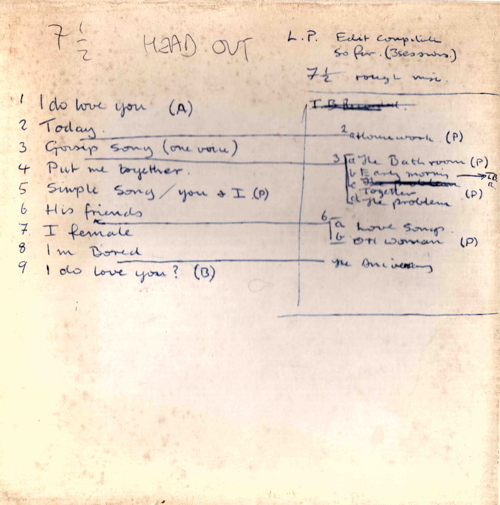 7 1/2 HEAD OUT
L.P. Edit compilation
so far. (3 sessions.)
7 1/2 rough mix.
1 I do love you (A)
2 Today.
3 Gossip Song (one voice)
4 Put me together.
5 Simple Song / you & I (P)
6 His friends
7 I female
8 I'm Bored
9 I do love you? (B)
2 a Homework (P)
3 a The Bathroom (P)
b Early morning
c The problem
Together (P)
d The problem
6 a Love Song.
b OH woman (P)
The